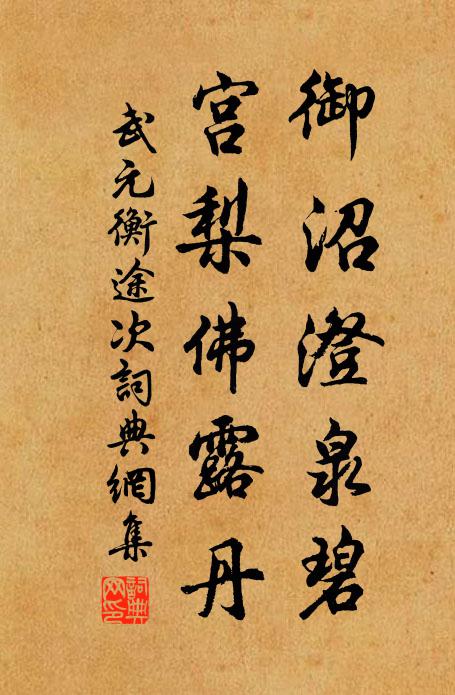 御沼澄泉碧
宮梨佛露丹
武元衡途次詞典網集
詞典
网印